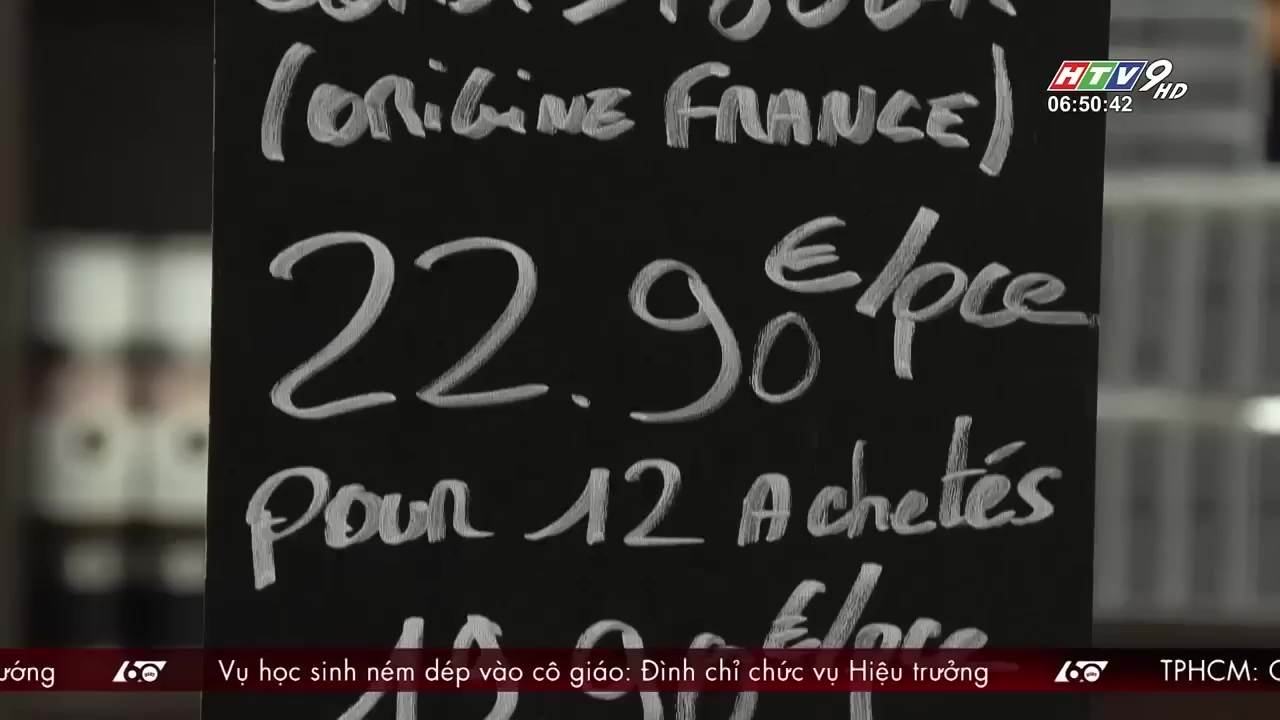 (ORIGINE FRANCE)
22.90 €/pce
pour 12 Achetés
HTV9 HD
06:50:42
ướng
60 giây
Vụ học sinh ném dép vào cô giáo: Đình chỉ chức vụ Hiệu trưởng
60 giây
TPHCM: C